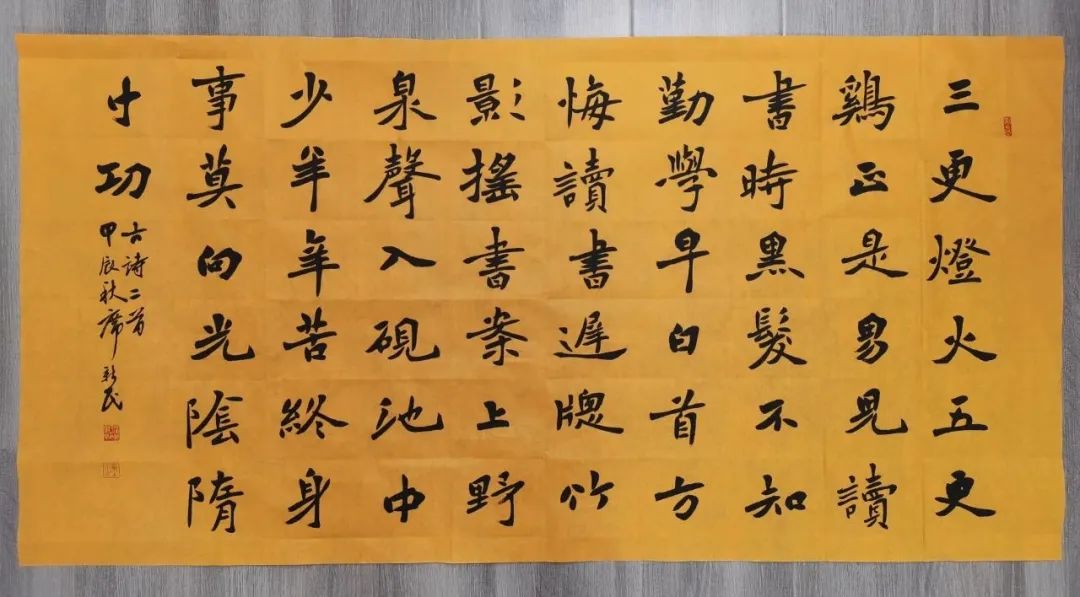 三更燈火五更
鷄正是男兒讀
書時黑髮不知
勤學早白首方
悔讀書遲牕竹
影摇書案上野
泉聲入硯池中
少年辛苦終身
事莫向光陰隋
寸功
古詩二首
甲辰秋席新民